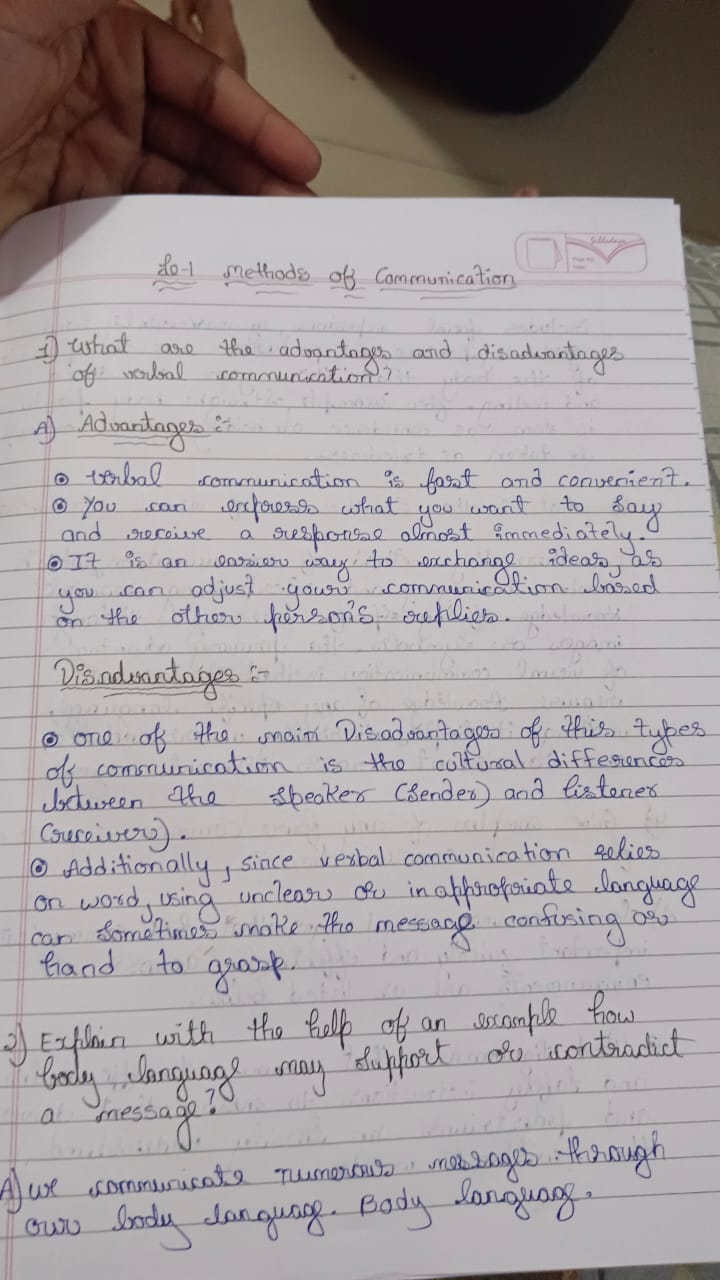 Lo-1 Methods of Communication
1) What are the advantages and disadvantages
of verbal communication?
A) Advantages :-
verbal communication is fast and convenient.
You can express what you want to say
and receive a response almost immediately.
It is an easier way to exchange ideas, as
you can adjust your communication based
on the other person's replies.
Disadvantages :-
one of the main Disadvantages of this types
of communication is the cultural differences
between the speaker (sender) and listener
(receiver).
Additionally, since verbal communication relies
on word, using unclear or inappropriate language
can sometimes make the message confusing or
hard to grasp.
2) Explain with the help of an example how
body language may support or contradict
a message?
A) we communicate numerous messages through
our body language. Body language.